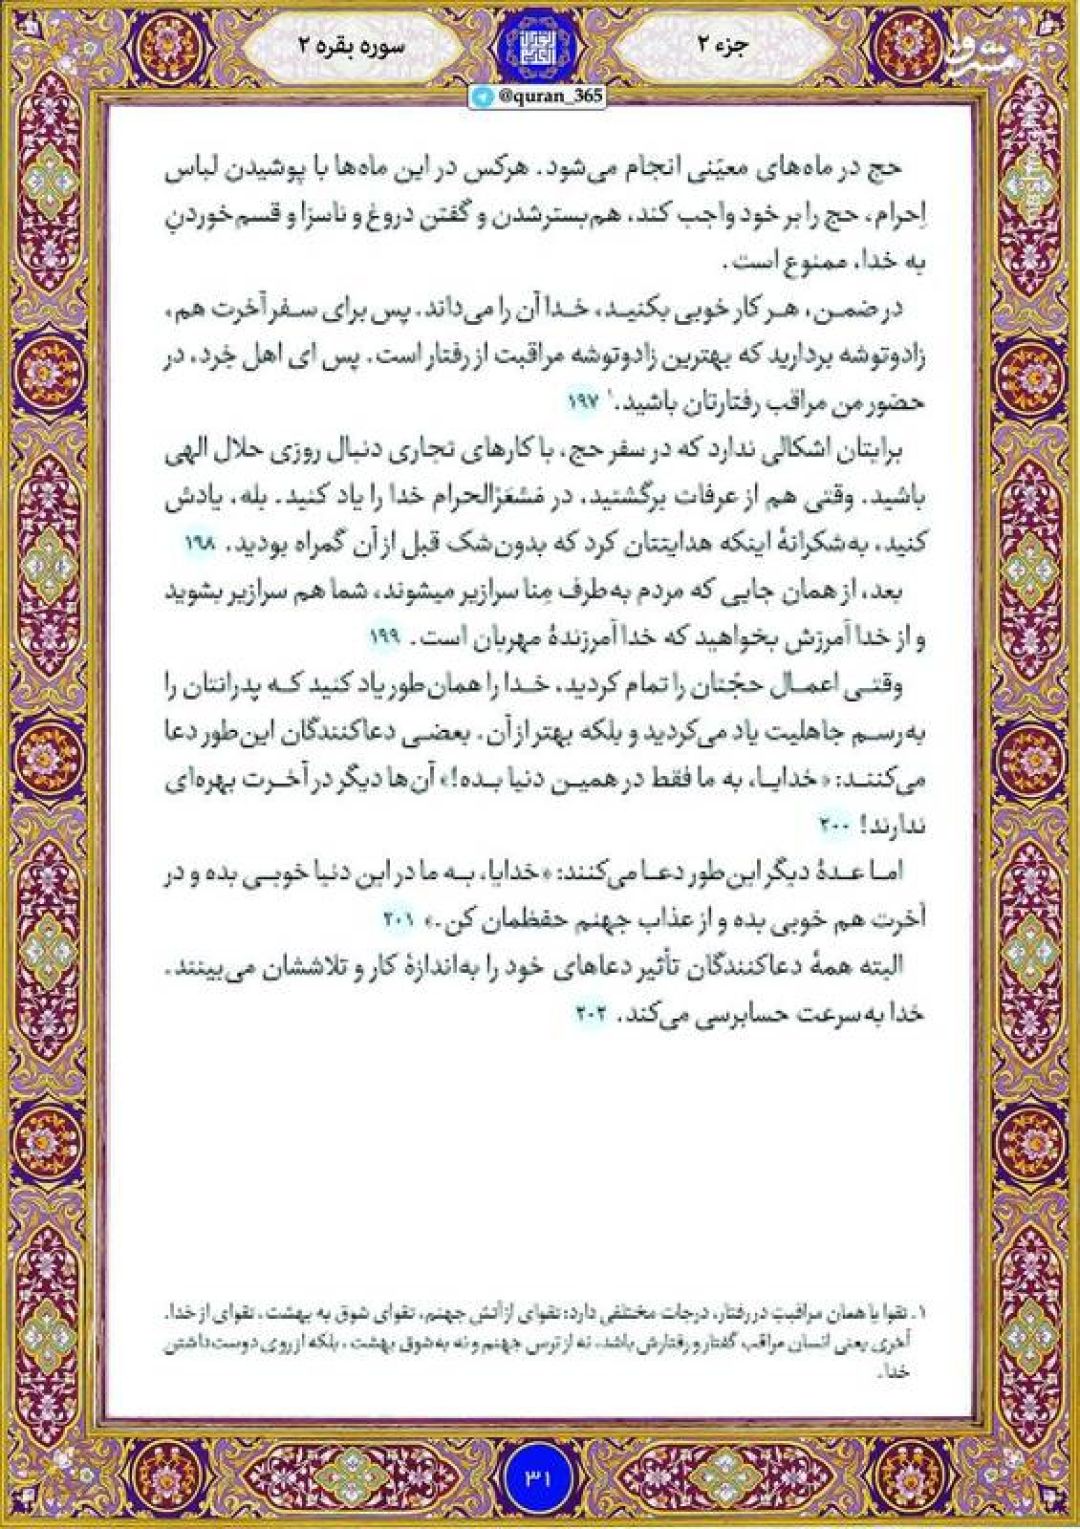 جزء ۲
سوره بقره ۲
@quran_365
مشرق
حج در ماه‌های معیّنی انجام می‌شود. هرکس در این ماه‌ها با پوشیدن لباس
اِحرام، حج را بر خود واجب کند، هم‌بسترشدن و گفتن دروغ و ناسزا و قسم‌خوردنِ
به خدا، ممنوع است.
در ضمـن، هـر کار خوبی بکنیـد، خـدا آن را می‌داند. پس برای سـفر آخرت هم،
زادوتوشه بردارید که بهترین زادوتوشه مراقبت از رفتار است. پس ای اهل خِرد، در
حضور من مراقب رفتارتان باشید.۱ ۱۹۷
برایتان اشکالی ندارد که در سفر حج، با کارهای تجاری دنبال روزی حلال الهی
باشید. وقتی هم از عرفات برگشتید، در مَشعَرُالحرام خدا را یاد کنید. بله، یادش
کنید، به‌شکرانهٔ اینکه هدایتتان کرد که بدون‌شک قبل از آن گمراه بودید. ۱۹۸
بعد، از همان جایی که مردم به‌طرف مِنا سرازیر میشوند، شما هم سرازیر بشوید
و از خدا آمرزش بخواهید که خدا آمرزندهٔ مهربان است. ۱۹۹
وقتـی اعمـال حجّتان را تمام کردید، خـدا را همان‌طور یاد کنید کـه پدرانتان را
به‌رسـم جاهلیت یاد می‌کردید و بلکه بهتر از آن. بعضـی دعاکنندگان این‌طور دعا
می‌کننـد: «خدایـا، به ما فقط در همیـن دنیا بـده!» آن‌ها دیگر در آخـرت بهره‌ای
ندارند! ۲۰۰
امـا عـدهٔ دیگر این‌طور دعـا می‌کنند: «خدایا، بـه ما در این دنیا خوبـی بده و در
آخرت هم خوبی بده و از عذاب جهنم حفظمان کن.» ۲۰۱
البته همهٔ دعاکنندگان تأثیر دعاهای خود را به‌اندازهٔ کار و تلاششان می‌بینند.
خدا به‌سرعت حسابرسی می‌کند. ۲۰۲
۱. تقوا یا همان مراقبت در رفتار، درجات مختلفی دارد: تقوای از آتش جهنم، تقوای شوق به بهشت، تقوای از خدا.
آخری یعنی انسان مراقب گفتار و رفتارش باشد، نه از ترس جهنم و نه به‌شوق بهشت، بلکه از روی دوست‌داشتن
خدا.
۳۱